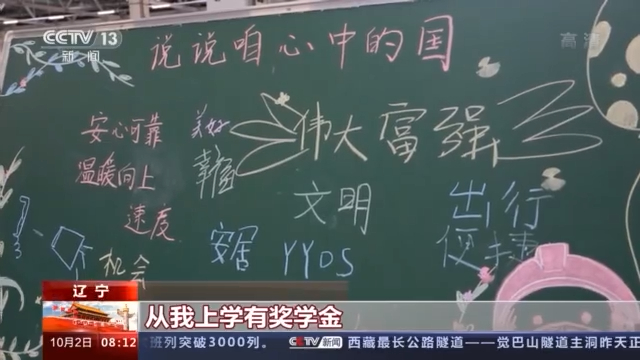 CCTV 13
新闻
高清
说说咱心中的国
安心可靠
美好
伟大富强
温暖向上
幸福
速度
文明
出行
便捷
机会
安居
YYDS
辽宁
从我上学有奖学金
10月2日 08:12
班列突破3000列。 CCTV新闻 西藏最长公路隧道——觉巴山隧道主洞昨天正